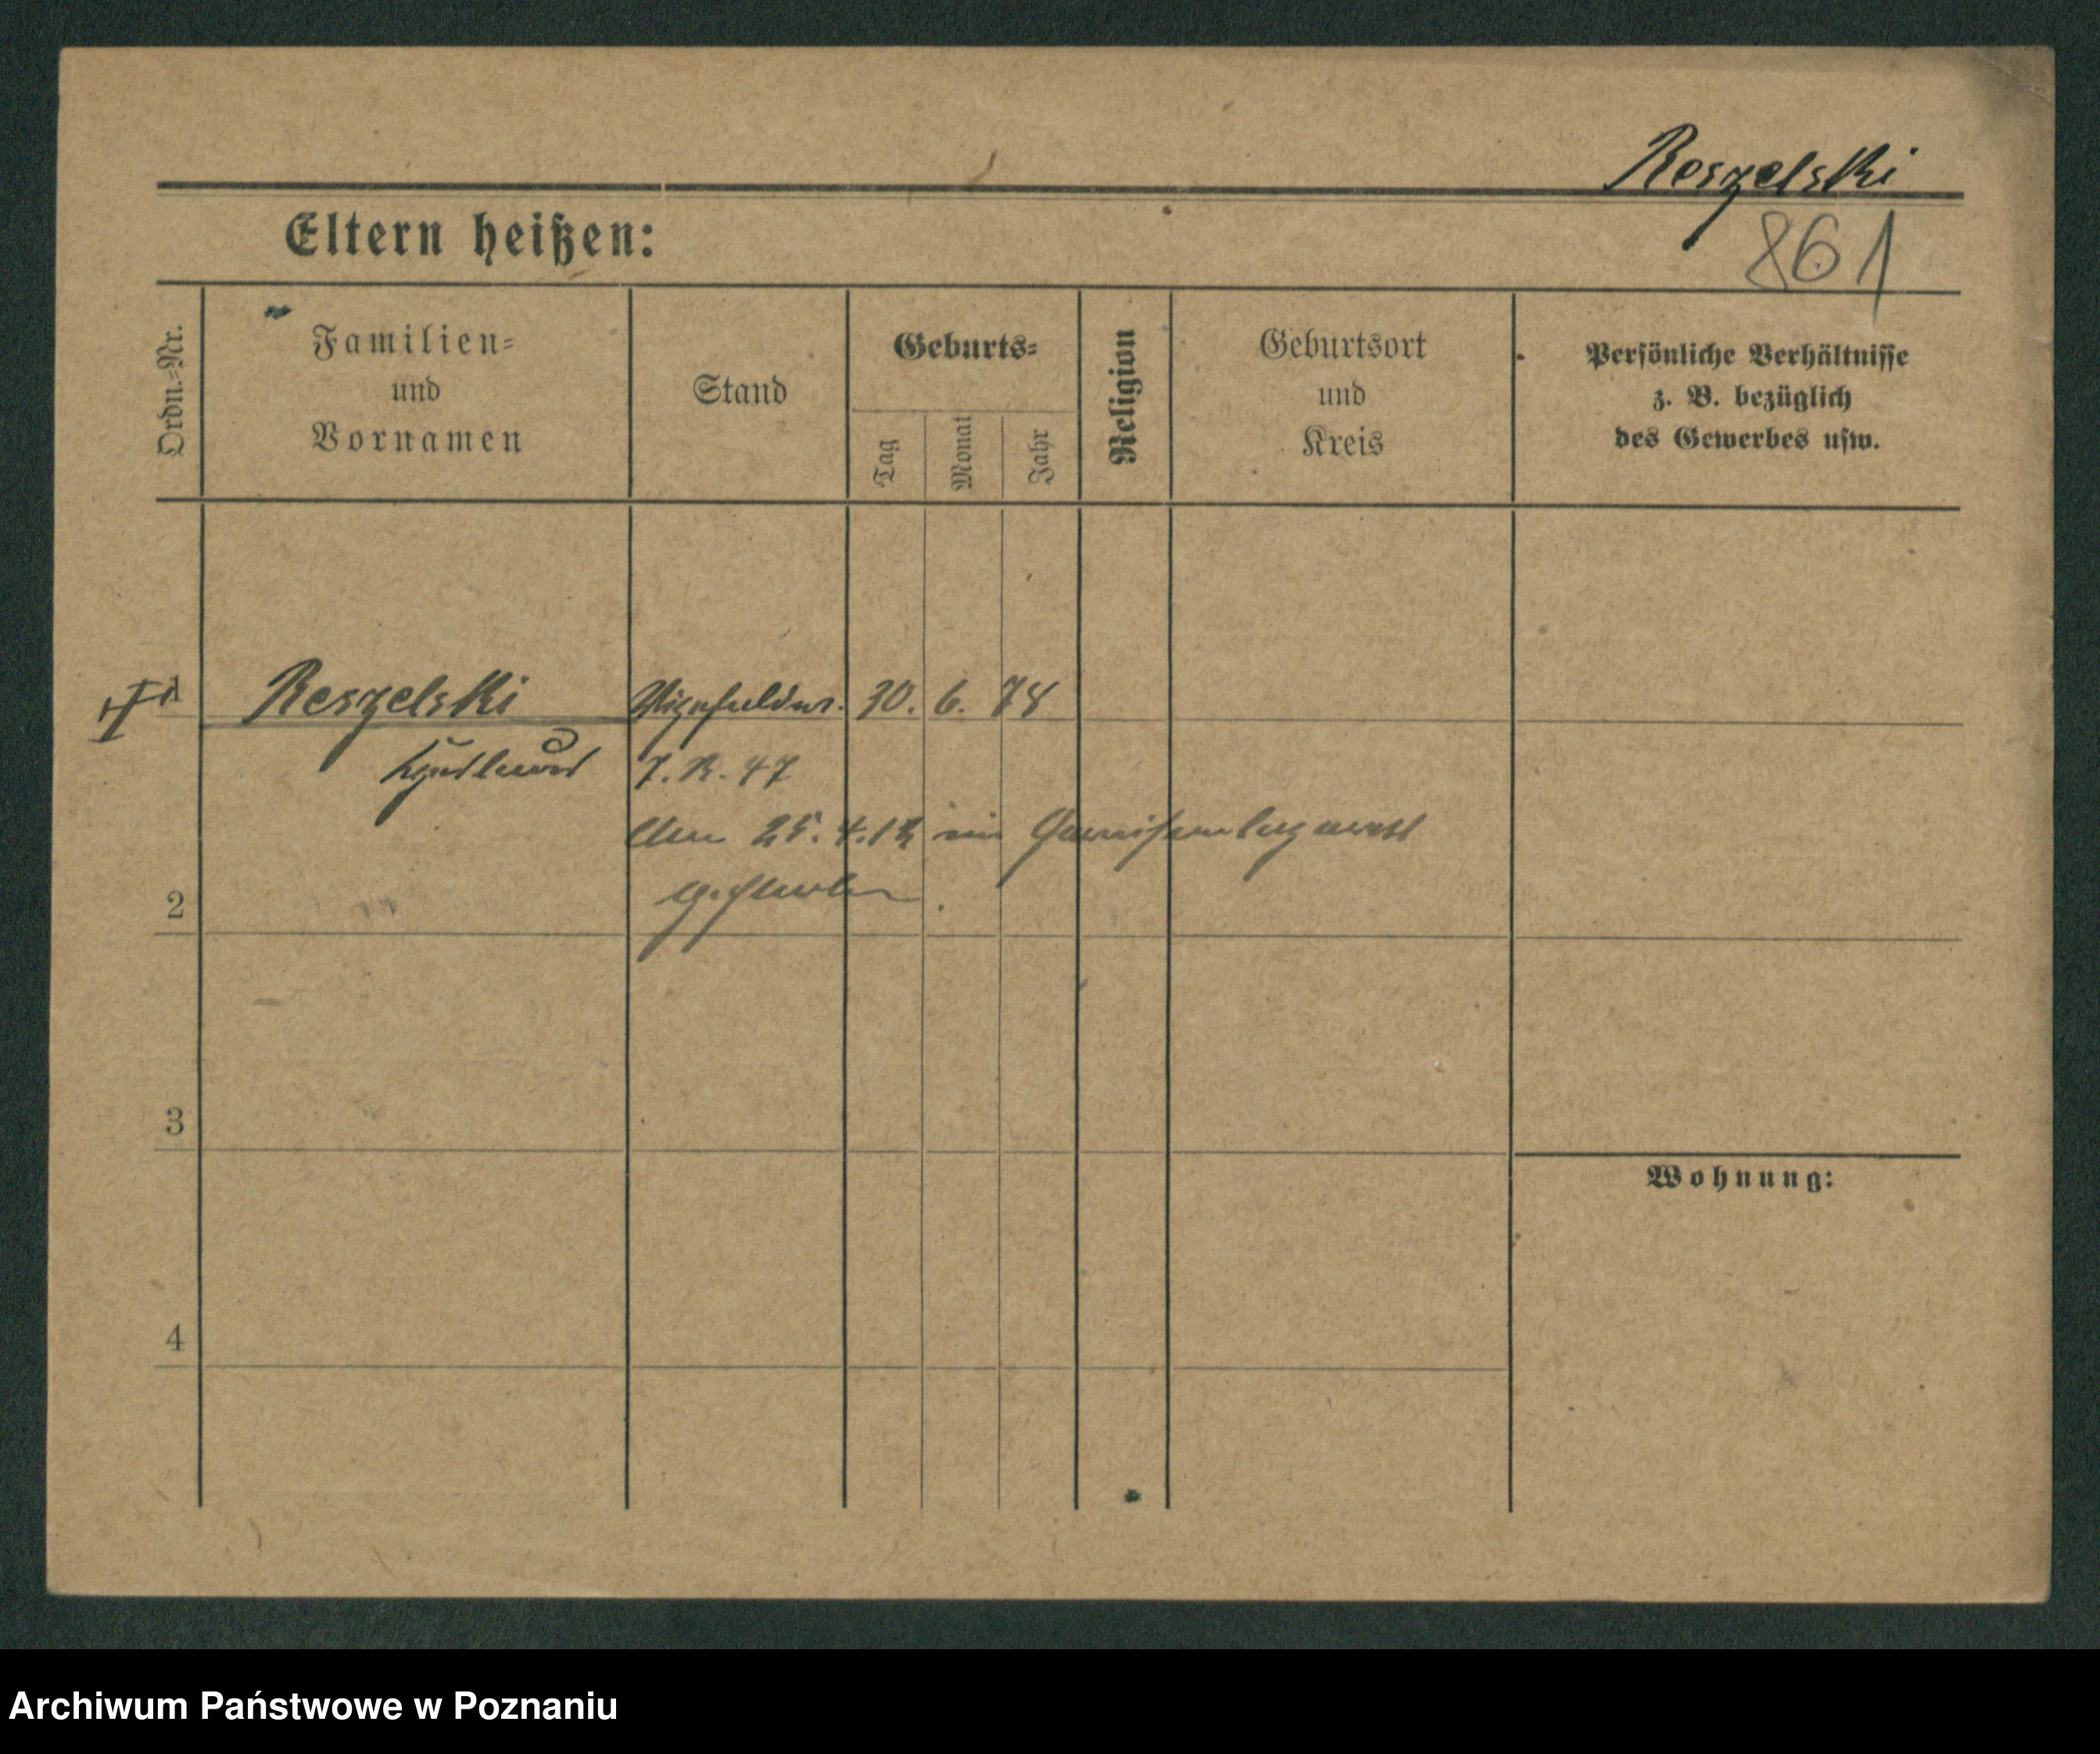 Reszelski
861
Eltern heißen:
Ordn.-Nr.
Familien-
und
Vornamen
Stand
Geburts-
Tag
Monat
Jahr
Religion
Geburtsort
und
Kreis
Persönliche Verhältnisse
z. B. bezüglich
des Gewerbes usw.
1
Reszelski
Vizefeldw. 30. 6. 78
J.R. 47
Am 25. 4. 12 im Garnisonlazarett
gestorben.
2
3
Wohnung:
4
Archiwum Państwowe w Poznaniu